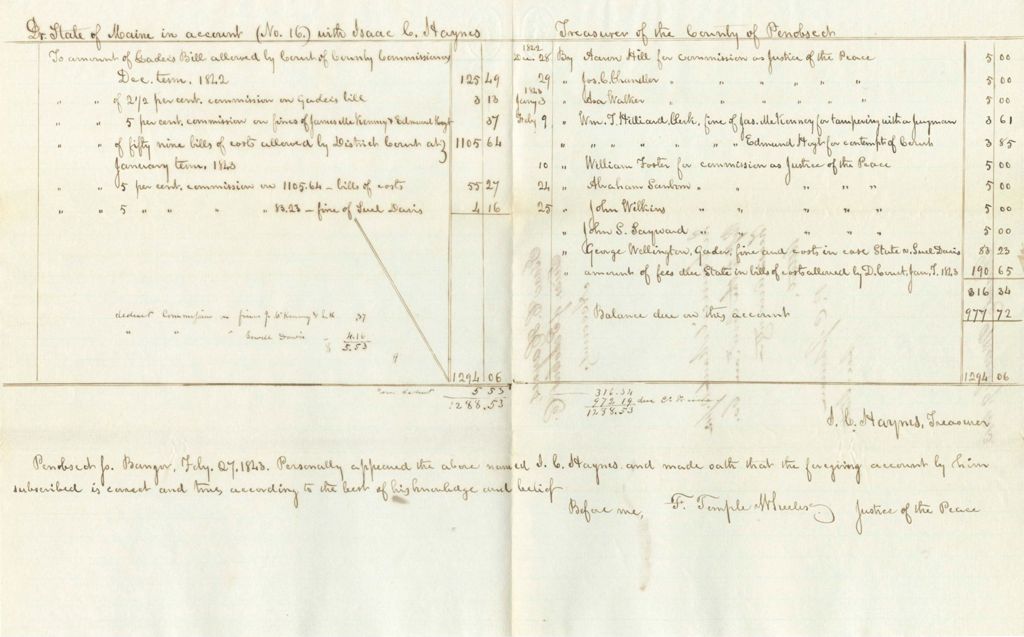 Dr. State of Maine in account (No. 16.) with Isaac C. Haynes
To amount of Gaoler's Bill allowed by Court of County Commissioners
Dec. term. 1842 125 49
" " of 2 1/2 per cent. commission on Gaoler's bill 3 13
" " 5 per cent. commission on fines of James McKenney & Edmund Hoyt 37
" " of fifty nine bills of costs allowed by District Court at
January term, 1843 1105 64
" " 5 per cent. commission on 1105.64 – bills of costs 55 27
" " 5 " " " " 83.23 – fine of Suel Davis 4 16
deduct Commission on fines J. McKenney & 37
" " " Davis 4.16
5.53
1294 06
deduct 5 53
1288.53
Treasurer of the County of Penobscot
1842
Dec. 28 By Aaron Hill for commission as Justice of the Peace 5 00
29 " Jos. C. Chandler " " " " " 5 00
1843
Jany 3 " Asa Walker " " " " " 5 00
Feby 9 " Wm. T. Hilliard, Clerk, fine of Jas. McKenney for tampering with a juryman 3 61
" " " " " " Edmund Hoyt for contempt of Court 3 85
10 " William Foster for commission as Justice of the Peace 5 00
24 " Abraham Sanborn " " " " 5 00
25 " John Wilkins " " " " " 5 00
" John S. Sayward " " " " " 5 00
" George Wellington, Gaoler, fine and costs in case State v. Suel Davis 83 23
" amount of fees due State in bills of cost allowed by D. Court, Jan. T. 1843 190 65
316 34
Balance due on this account 977 72
1294 06
316.34
972.19 due
1288.53
I. C. Haynes, Treasurer
Penobscot ss. Bangor, Feby. 27. 1843. Personally appeared the above named I. C. Haynes and made oath that the foregoing account by him
subscribed is correct and true, according to the best of his knowledge and belief
Before me, F. Temple Wheeler Justice of the Peace